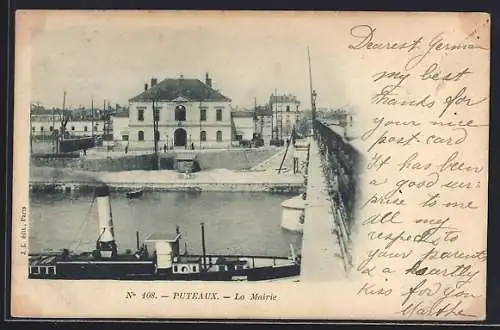 Dearest German
my best
thanks for
your nice
post-card
It has been
a good sur:
prise to me
all my
respects to
your parents
& a heartly
kiss for you
Marthe
J. L. édit., Paris
Nº 108. — PUTEAUX. — La Mairie